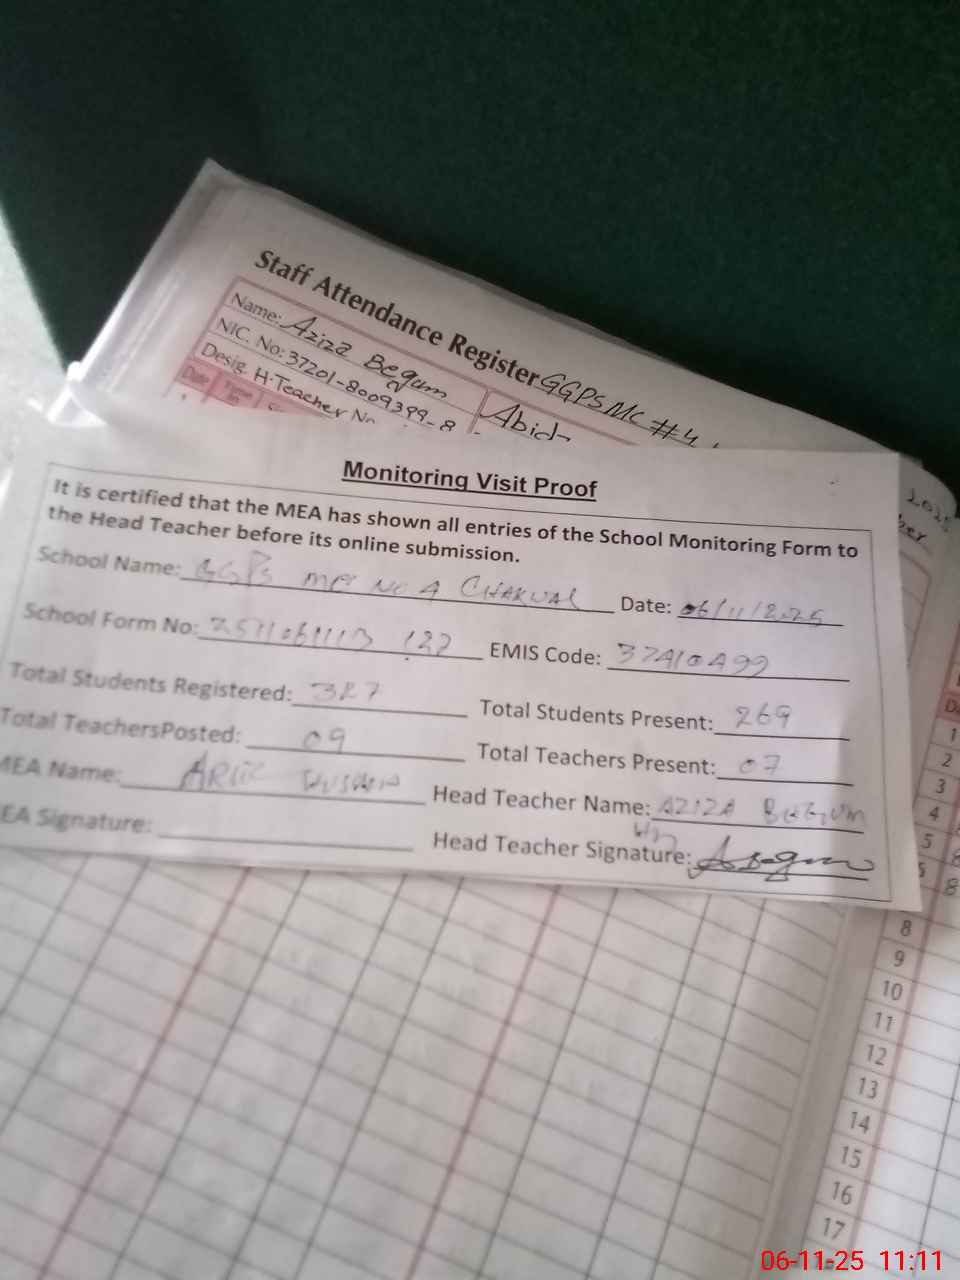 Staff Attendance Register GGPS MC #4
Name: Aziza Begum
NIC. No: 37201-8009399-8
Abid
Desig. H.Teacher No
Date Time In
2025
ber
Monitoring Visit Proof
It is certified that the MEA has shown all entries of the School Monitoring Form to
the Head Teacher before its online submission.
School Name: GGPS MC NO 4 CHAKWAL Date: 06/11/2025
School Form No: EMIS Code: 37210499
Total Students Registered: 327 Total Students Present: 269
Total TeachersPosted: 09 Total Teachers Present: 07
MEA Name: Head Teacher Name: AZIZA BEGUM
EA Signature: Head Teacher Signature: ABegum
1
2
3
4
5
6
8
9
10
11
12
13
14
15
16
17
06-11-25 11:11